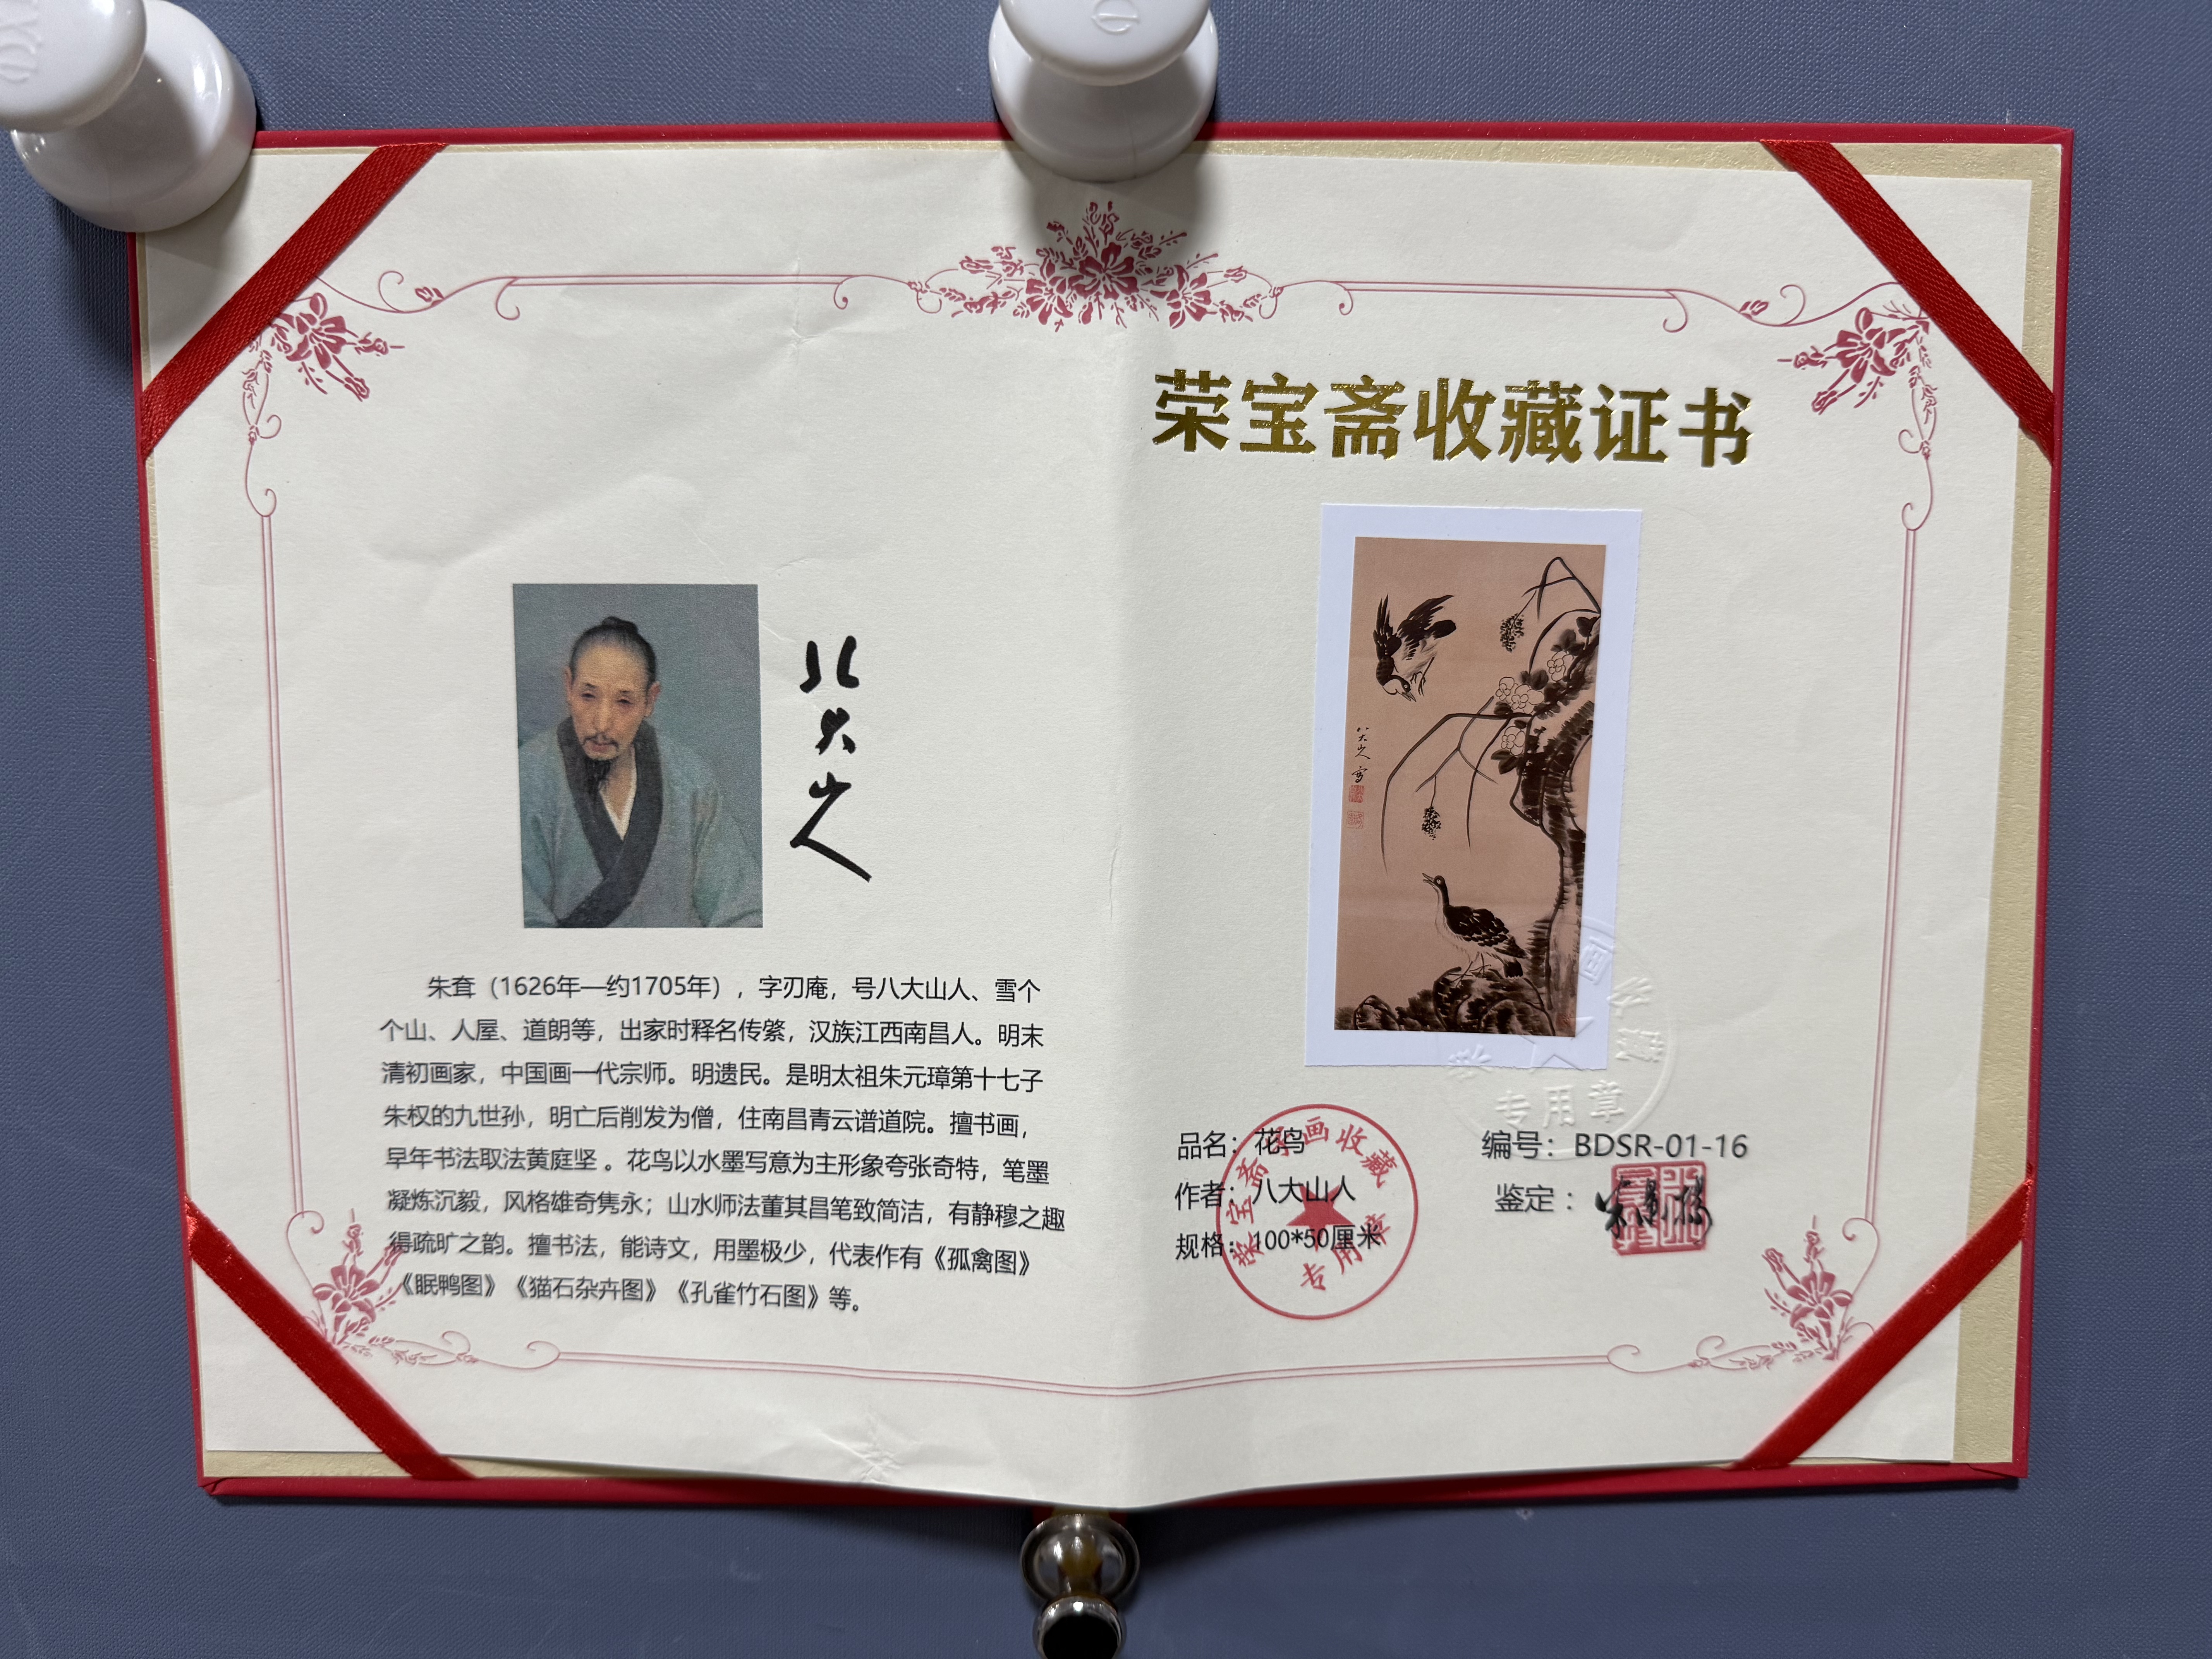 荣宝斋收藏证书
八大山人
朱耷（1626年—约1705年），字刃庵，号八大山人、雪个
个山、人屋、道朗等，出家时释名传綮，汉族江西南昌人。明末
清初画家，中国画一代宗师。明遗民。是明太祖朱元璋第十七子
朱权的九世孙，明亡后削发为僧，住南昌青云谱道院。擅书画，
早年书法取法黄庭坚 。花鸟以水墨写意为主形象夸张奇特，笔墨
凝炼沉毅，风格雄奇隽永；山水师法董其昌笔致简洁，有静穆之趣
得疏旷之韵。擅书法，能诗文，用墨极少，代表作有《孤禽图》
《眠鸭图》《猫石杂卉图》《孔雀竹石图》等。
八大山人 写
品名：花鸟
作者：八大山人
规格：100*50厘米
编号：BDSR-01-16
鉴定：
荣宝斋字画收藏
专用章
专用章